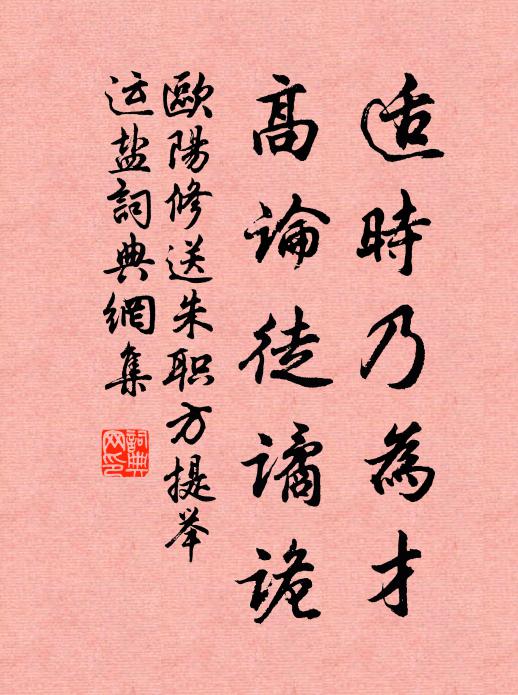 适時乃為才
高論徒譎詭
歐陽修送朱职方提举
运盐詞典網集
詞典
网印